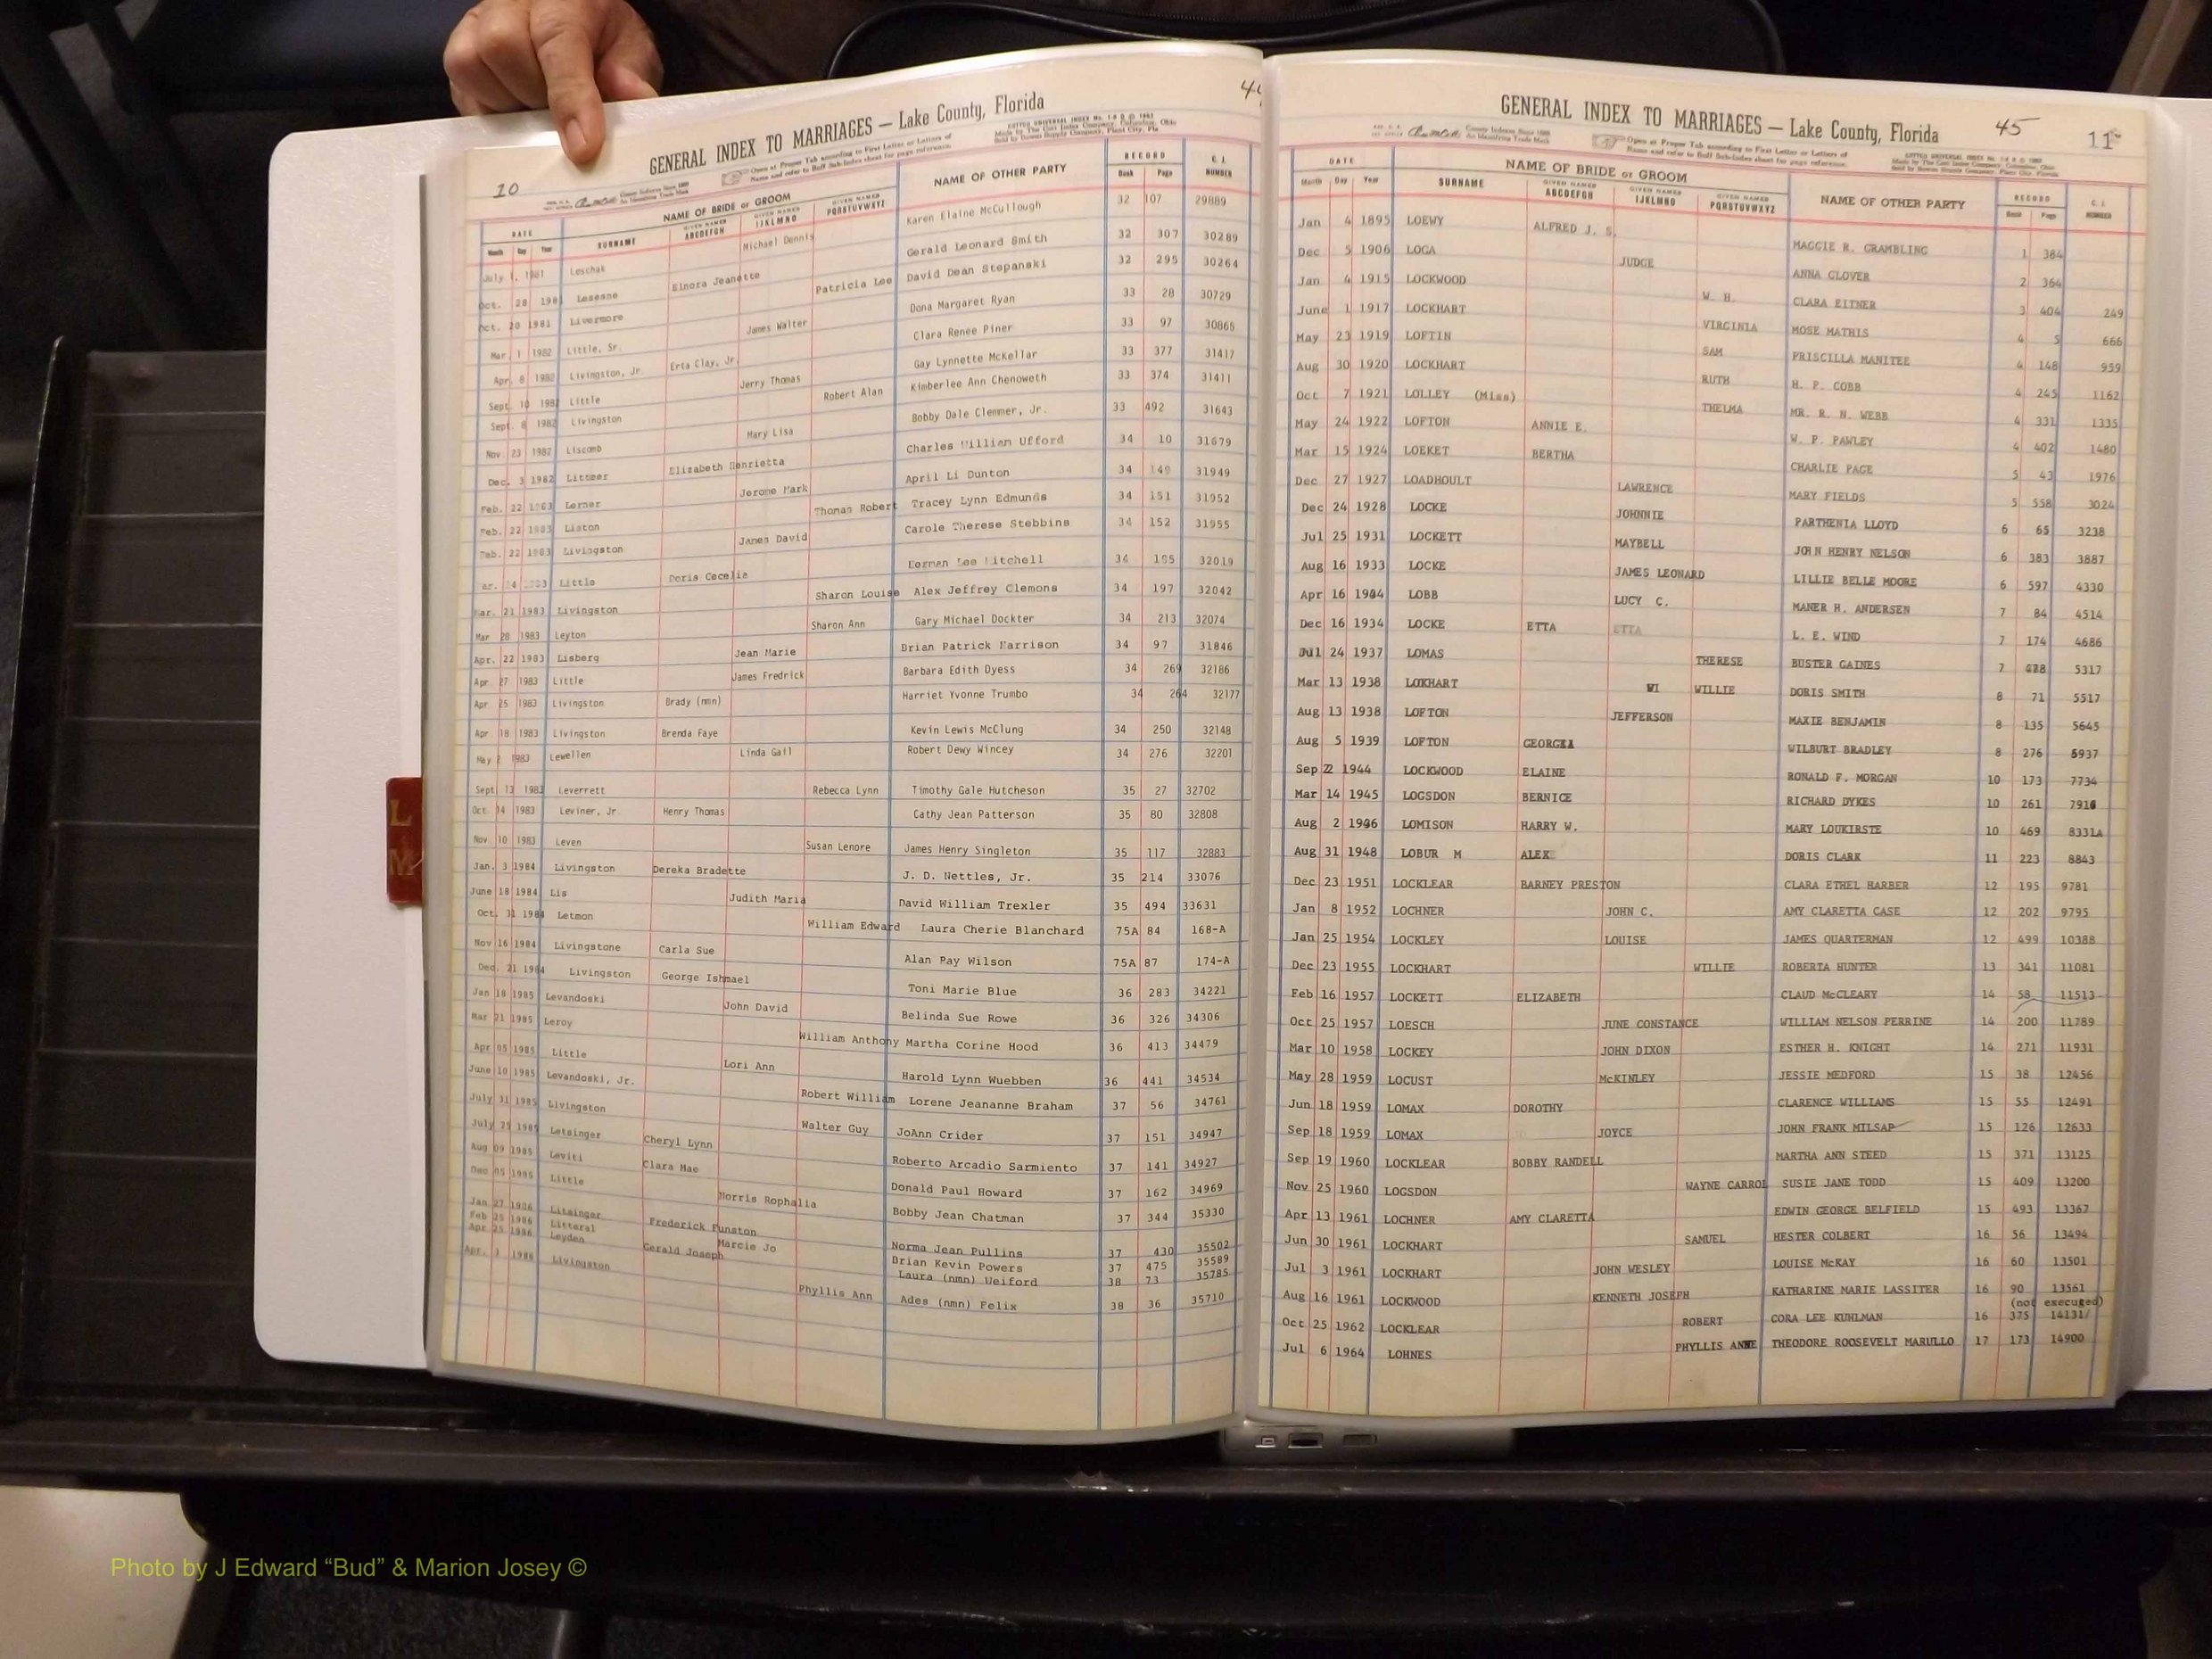 10
44
GENERAL INDEX TO MARRIAGES — Lake County, Florida
Open at Proper Tab according to First Letter or Letters of
Name and refer to Buff Sub-Index sheet for page reference.
DATE NAME OF BRIDE or GROOM NAME OF OTHER PARTY RECORD C. J. NUMBER
Month Day Year SURNAME GIVEN NAMES ABCDEFGH GIVEN NAMES IJKLMNO GIVEN NAMES PQRSTUVWXYZ Book Page
July 1, 1981 Leschak Michael Dennis Karen Elaine McCullough 32 107 29889
Oct. 28 198 Lesesne Elnora Jeanette Gerald Leonard Smith 32 307 30289
Oct. 20 1981 Livermore Patricia Lee David Dean Stepanski 32 295 30264
Mar. 1 1982 Little, Sr. James Walter Dona Margaret Ryan 33 28 30729
Apr. 8 1982 Livingston, Jr. Erta Clay, Jr. Clara Renee Piner 33 97 30865
Sept. 10 1982 Little Jerry Thomas Gay Lynnette McKellar 33 377 31417
Sept. 8 1982 Livingston Robert Alan Kimberlee Ann Chenoweth 33 374 31411
Nov. 23 1982 Liscomb Mary Lisa Bobby Dale Clemmer, Jr. 33 492 31643
Dec. 3 1982 Littmer Elizabeth Henrietta Charles William Ufford 34 10 31679
Feb. 22 1983 Lerner Jerome Mark April Li Dunton 34 149 31949
Feb. 22 1983 Liston Thomas Robert Tracey Lynn Edmunds 34 151 31952
Feb. 22 1983 Livingston James David Carole Therese Stebbins 34 152 31955
ar. 14 1983 Little Doris Cecelia Lorman Lee Mitchell 34 185 32019
Mar. 21 1983 Livingston Sharon Louise Alex Jeffrey Clemons 34 197 32042
Mar 28 1983 Leyton Sharon Ann Gary Michael Dockter 34 213 32074
Apr. 22 1983 Lisberg Jean Marie Brian Patrick Harrison 34 97 31846
Apr. 27 1983 Little James Fredrick Barbara Edith Dyess 34 269 32186
Apr. 25 1983 Livingston Brady (nmn) Harriet Yvonne Trumbo 34 264 32177
Apr. 18 1983 Livingston Brenda Faye Kevin Lewis McClung 34 250 32148
May 2 1983 Lewellen Linda Gail Robert Dewy Wincey 34 276 32201
Sept. 13 1983 Leverrett Rebecca Lynn Timothy Gale Hutcheson 35 27 32702
Oct. 14 1983 Leviner, Jr. Henry Thomas Cathy Jean Patterson 35 80 32808
Nov 10 1983 Leven Susan Lenore James Henry Singleton 35 117 32883
Jan. 3 1984 Livingston Dereka Bradette J. D. Nettles, Jr. 35 214 33076
June 18 1984 Lis Judith Maria David William Trexler 35 494 33631
Oct. 31 1984 Letmon William Edward Laura Cherie Blanchard 75A 84 168-A
Nov 16 1984 Livingstone Carla Sue Alan Pay Wilson 75A 87 174-A
Dec. 21 1984 Livingston George Ishmael Toni Marie Blue 36 283 34221
Jan 18 1985 Levandoski John David Belinda Sue Rowe 36 326 34306
Mar 21 1985 Leroy William Anthony Martha Corine Hood 36 413 34479
Apr 05 1985 Little Lori Ann Harold Lynn Wuebben 36 441 34534
June 10 1985 Levandoski, Jr. Robert William Lorene Jeananne Braham 37 56 34761
July 31 1985 Livingston Walter Guy JoAnn Crider 37 151 34947
July 25 1985 Letsinger Cheryl Lynn Roberto Arcadio Sarmiento 37 141 34927
Aug 09 1985 Leviti Clara Mae Donald Paul Howard 37 162 34969
Dec 05 1985 Little Norris Rophalia Bobby Jean Chatman 37 344 35330
Jan 27 1986 Litsinger Frederick Funston Norma Jean Pullins 37 430 35502
Feb 25 1986 Litteral Marcie Jo Brian Kevin Powers 37 475 35589
Apr 25 1986 Leyden Gerald Joseph Laura (nmn) Weiford 38 73 35785
Apr. 3 1986 Livingston Phyllis Ann Ades (nmn) Felix 38 36 35710
L
M
GENERAL INDEX TO MARRIAGES — Lake County, Florida
45
11
Open at Proper Tab according to First Letter or Letters of
Name and refer to Buff Sub-Index sheet for page reference.
DATE NAME OF BRIDE or GROOM NAME OF OTHER PARTY RECORD C. J. NUMBER
Month Day Year SURNAME GIVEN NAMES ABCDEFGH GIVEN NAMES IJKLMNO GIVEN NAMES PQRSTUVWXYZ Book Page
Jan 4 1895 LOEWY ALFRED J. S. MAGGIE R. GRAMBLING 1 384
Dec 5 1906 LOGA JUDGE ANNA GLOVER 2 364
Jan 4 1915 LOCKWOOD W. H. CLARA EITNER 3 404 249
June 1 1917 LOCKHART VIRGINIA MOSE MATHIS 4 5 666
May 23 1919 LOFTIN SAM PRISCILLA MANITEE 4 148 959
Aug 30 1920 LOCKHART RUTH H. P. COBB 4 245 1162
Oct 7 1921 LOLLEY (Miss) THELMA MR. R. N. WEBB 4 331 1335
May 24 1922 LOFTON ANNIE E. W. P. PAWLEY 4 402 1480
Mar 15 1924 LOEKET BERTHA CHARLIE PAGE 5 43 1976
Dec 27 1927 LOADHOULT LAWRENCE MARY FIELDS 5 558 3024
Dec 24 1928 LOCKE JOHNNIE PARTHENIA LLOYD 6 65 3238
Jul 25 1931 LOCKETT MAYBELL JOHN HENRY NELSON 6 383 3887
Aug 16 1933 LOCKE JAMES LEONARD LILLIE BELLE MOORE 6 597 4330
Apr 16 1934 LOBB LUCY C. MANER H. ANDERSEN 7 84 4514
Dec 16 1934 LOCKE ETTA ETTA L. E. WIND 7 174 4686
Jul 24 1937 LOMAS THERESE BUSTER GAINES 7 478 5317
Mar 13 1938 LOKHART WI WILLIE DORIS SMITH 8 71 5517
Aug 13 1938 LOFTON JEFFERSON MAXIE BENJAMIN 8 135 5645
Aug 5 1939 LOFTON GEORGIA WILBURT BRADLEY 8 276 5937
Sep 22 1944 LOCKWOOD ELAINE RONALD F. MORGAN 10 173 7734
Mar 14 1945 LOGSDON BERNICE RICHARD DYKES 10 261 7916
Aug 2 1946 LOMISON HARRY W. MARY LOUKIRSTE 10 469 8331A
Aug 31 1948 LOBUR M ALEX DORIS CLARK 11 223 8843
Dec 23 1951 LOCKLEAR BARNEY PRESTON CLARA ETHEL HARBER 12 195 9781
Jan 8 1952 LOCHNER JOHN C. AMY CLARETTA CASE 12 202 9795
Jan 25 1954 LOCKLEY LOUISE JAMES QUARTERMAN 12 499 10388
Dec 23 1955 LOCKHART WILLIE ROBERTA HUNTER 13 341 11081
Feb 16 1957 LOCKETT ELIZABETH CLAUD McCLEARY 14 58 11513
Oct 25 1957 LOESCH JUNE CONSTANCE WILLIAM NELSON PERRINE 14 200 11789
Mar 10 1958 LOCKEY JOHN DIXON ESTHER H. KNIGHT 14 271 11931
May 28 1959 LOCUST McKINLEY JESSIE MEDFORD 15 38 12456
Jun 18 1959 LOMAX DOROTHY CLARENCE WILLIAMS 15 55 12491
Sep 18 1959 LOMAX JOYCE JOHN FRANK MILSAP 15 126 12633
Sep 19 1960 LOCKLEAR BOBBY RANDELL MARTHA ANN STEED 15 371 13125
Nov 25 1960 LOGSDON WAYNE CARROL SUSIE JANE TODD 15 409 13200
Apr 13 1961 LOCHNER AMY CLARETTA EDWIN GEORGE BELFIELD 15 493 13367
Jun 30 1961 LOCKHART SAMUEL HESTER COLBERT 16 56 13494
Jul 3 1961 LOCKHART JOHN WESLEY LOUISE McKAY 16 60 13501
Aug 16 1961 LOCKWOOD KENNETH JOSEPH KATHARINE MARIE LASSITER 16 90 13561
(not execuged)
Oct 25 1962 LOCKLEAR ROBERT CORA LEE KUHLMAN 16 375 14131
Jul 6 1964 LOHNES PHYLLIS ANNE THEODORE ROOSEVELT MARULLO 17 173 14900
Photo by J Edward “Bud” & Marion Josey ©